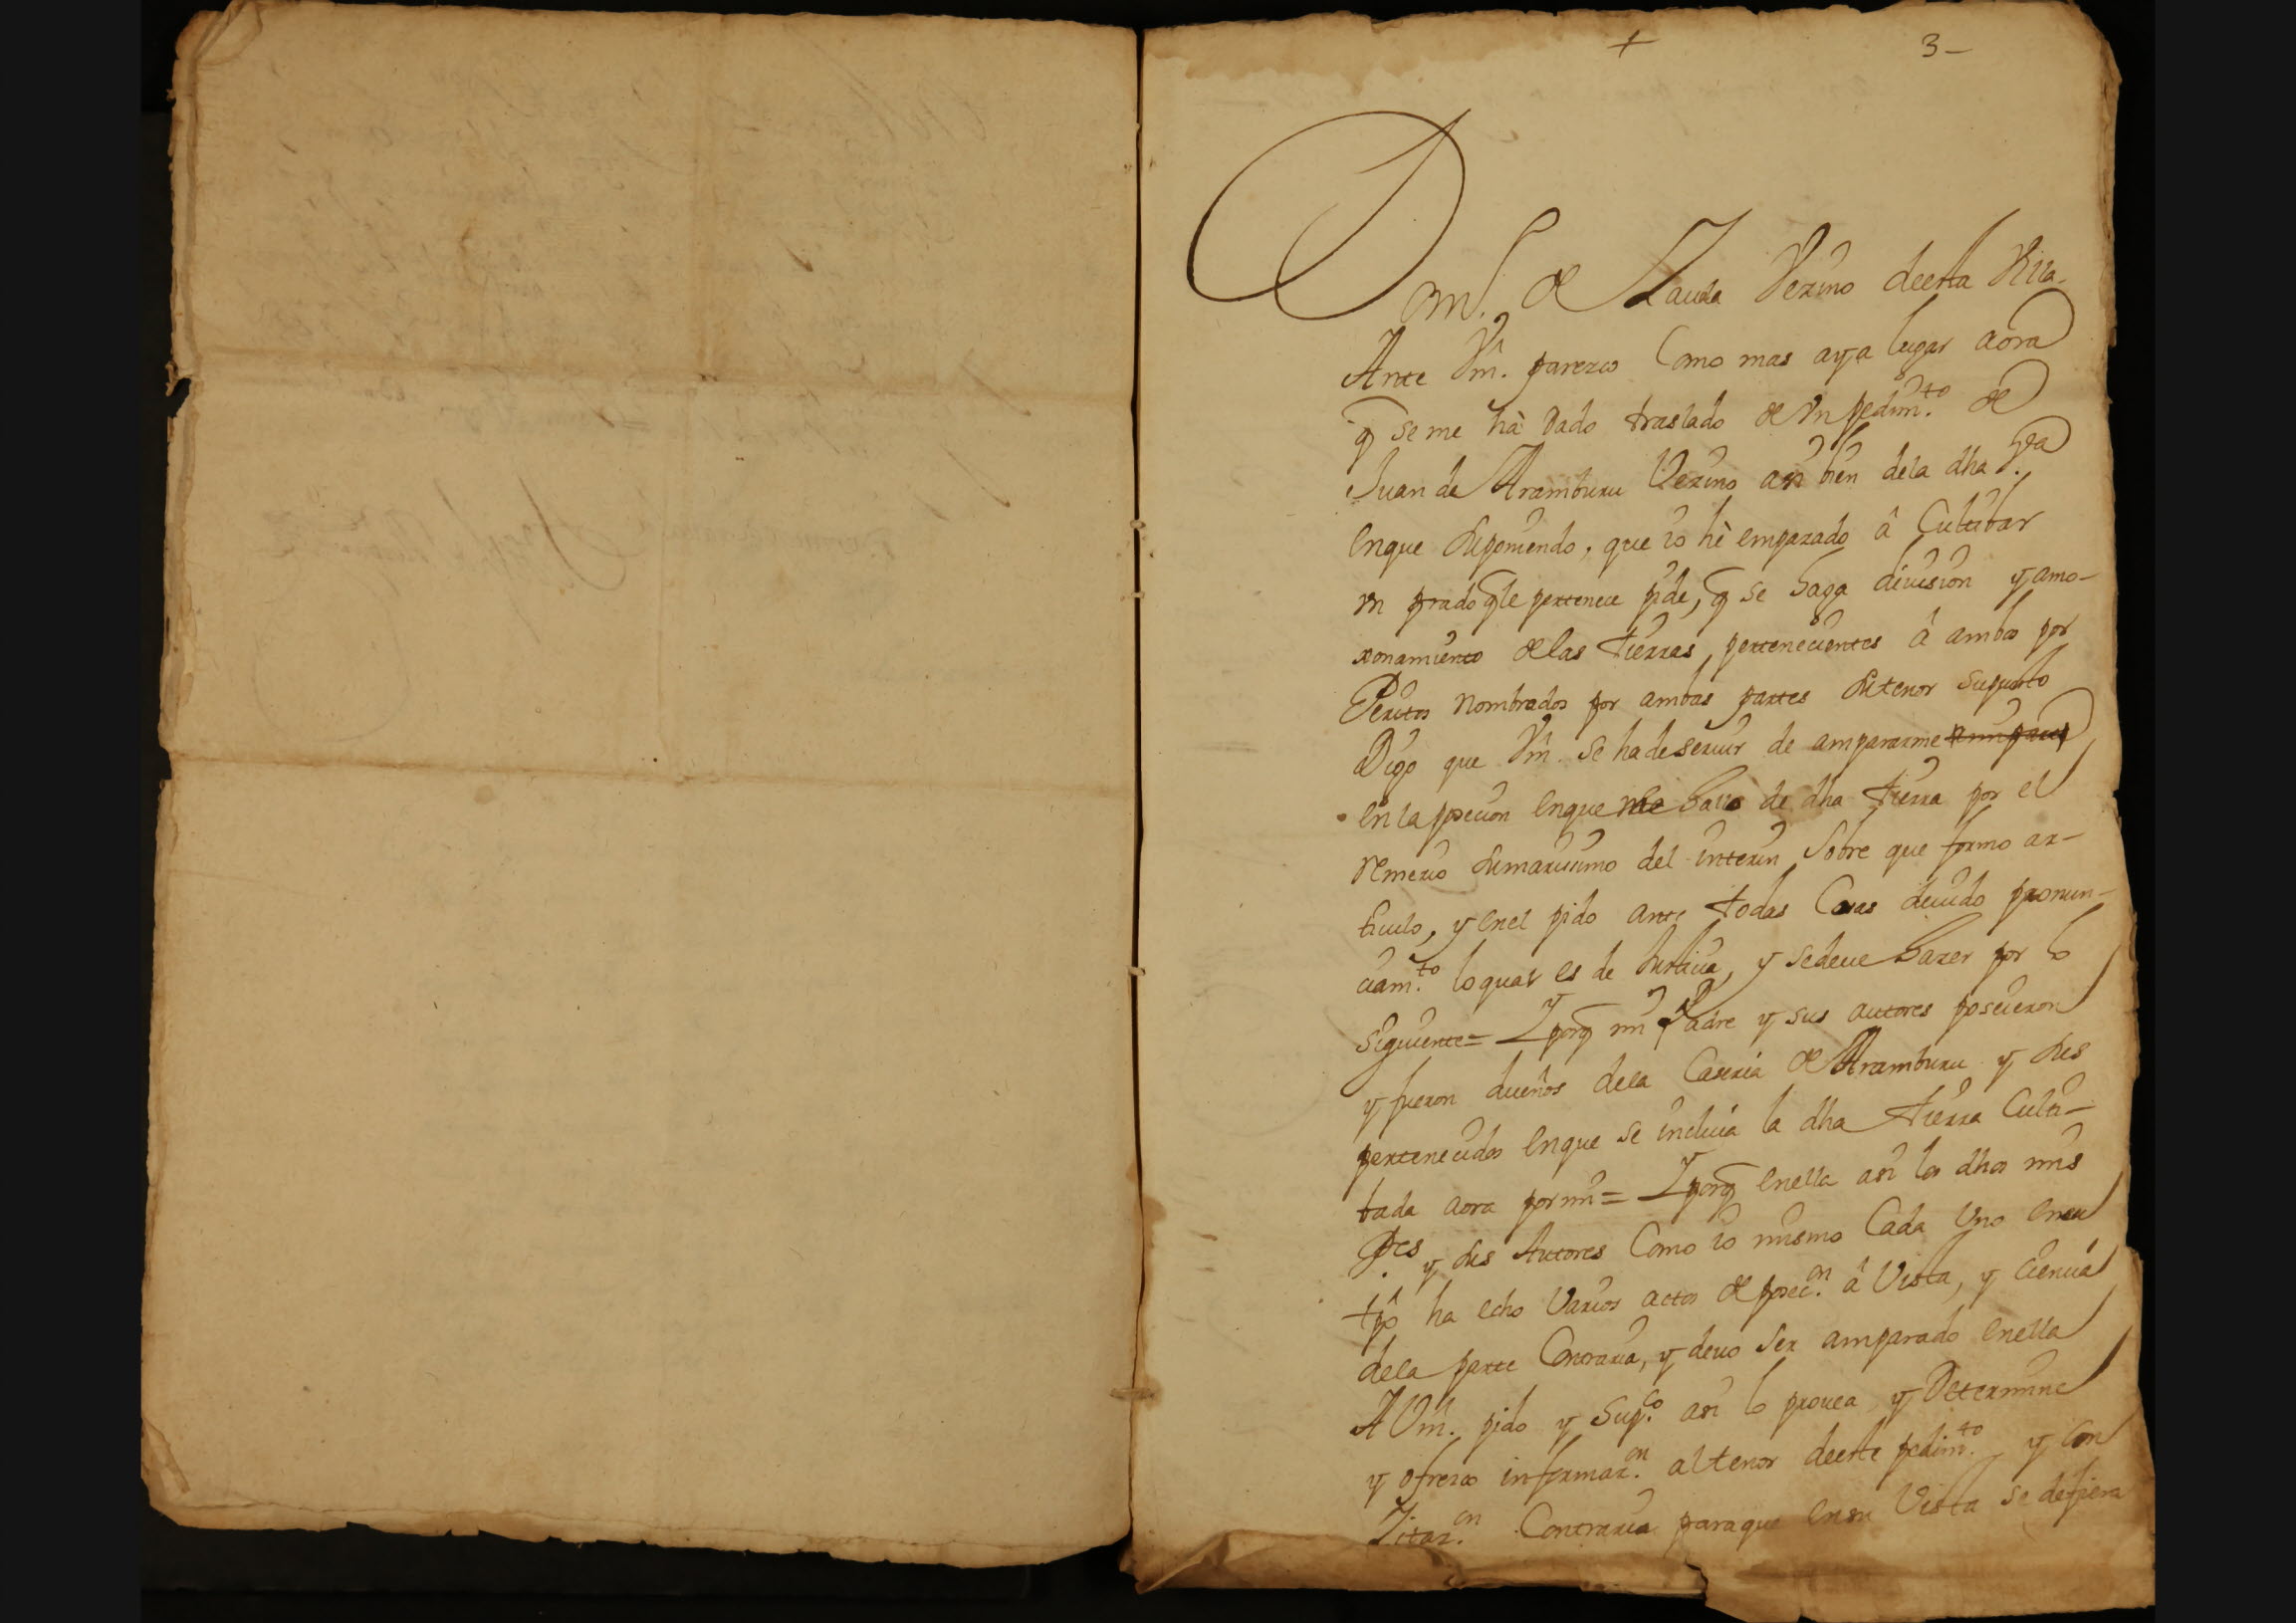 + 3-
Dom.s de Zauala Vezino deesta Villa
Ante Vm. parezco Como mas aya lugar aora
q se me hà dado traslado de Vn pedim.to de
Juan de Aramburu Vezino asi bien dela dha
enque suponiendo, que io hè empezado â Cultibar
vn prado qle pertenece pide, q se haga diuision y amo-
xonamiento de las tierras, pertenecientes â ambos por
Peritos nombrados por ambas partes su tenor supuesto
Digo que Vm. se ha de seruir de ampararme
en la posecion enque me hallo de dha tierra por el
remedio sumarisimo del interin Sobre que formo ar-
ticulo, y enel pido ante todas Cosas deuido pronun-
ciam.to lo qual es de Justicia, y sedeue hazer por lo
siguiente= Y porq mi Padre y sus autores poseieron
y fueron dueños dela Caseria de Aramburu y sus
pertenecidos enque se incluia la dha tierra Culti-
bada aora por mi= Y porq enella asi los dhos mis
P.es y sus Autores Como io mismo Cada Vno en su
tpô ha echo Varios actos de posec.on â Vista, y Ciencia
dela parte Contraria, y deuo ser amparado enella
A Vm. pido y Sup.co asi lo prouea y Determine
y ofrezco informaz.on al tenor deeste pedim.to y Con
Zitaz.on Contraria paraque en su Vista se defiera